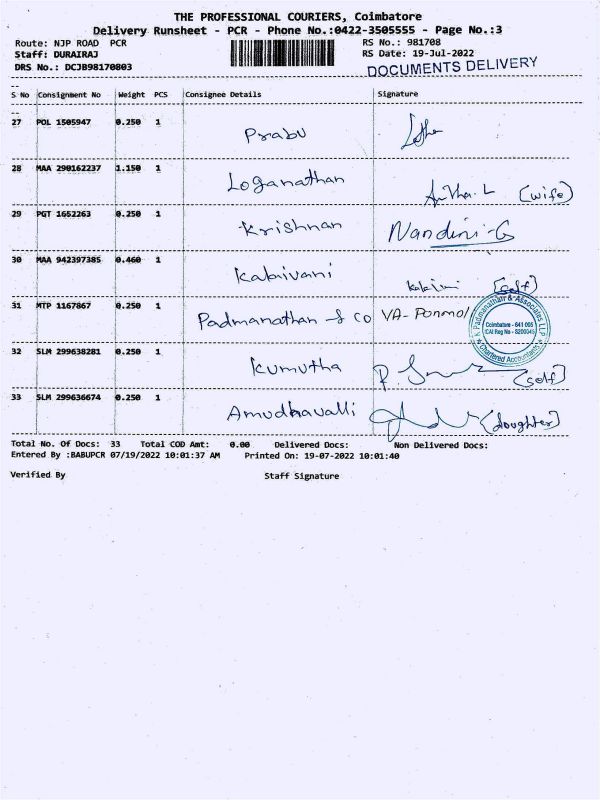 THE PROFESSIONAL COURIERS, Coimbatore
Delivery Runsheet - PCR - Phone No.:0422-3505555 - Page No.:3
Route: NJP ROAD PCR RS No.: 981708
Staff: DURAIRAJ RS Date: 19-Jul-2022
DRS No.: DCJB98170803 DOCUMENTS DELIVERY
S No Consignment No Weight PCS Consignee Details Signature
27 POL 1505947 0.250 1 Prabu
28 MAA 290162237 1.150 1 Loganathan (wife)
29 PGT 1652263 0.250 1 Krishnan Nandini-G
30 MAA 942397385 0.460 1 Kalaivani (self)
31 MTP 1167867 0.250 1 Padmanathan & Co VA-Ponmol
Padmanathan & Associates LLP
Coimbatore - 641 005
Chartered Accountants
32 SLM 299638281 0.250 1 Kumutha (self)
33 SLM 299636674 0.250 1 Amudhavalli (doughter)
Total No. Of Docs: 33 Total COD Amt: 0.00 Delivered Docs: Non Delivered Docs:
Entered By :BABUPCR 07/19/2022 10:01:37 AM Printed On: 19-07-2022 10:01:40
Verified By Staff Signature